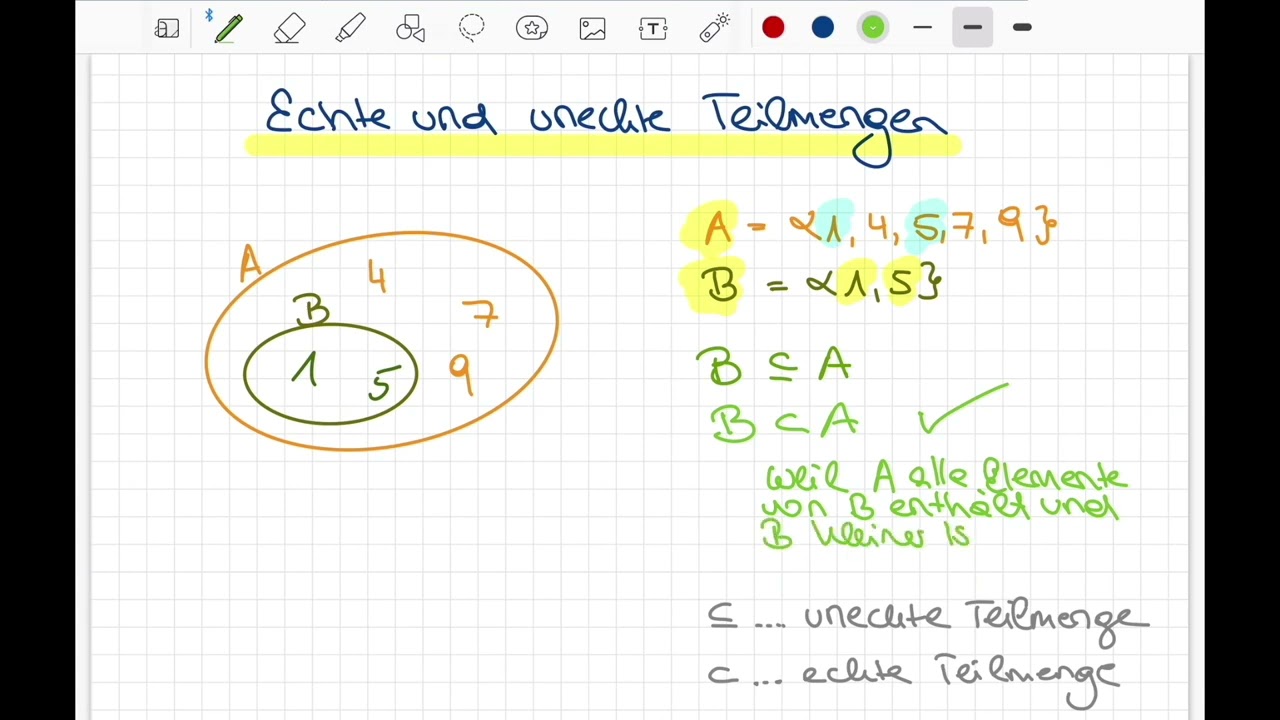 Echte und unechte Teilmengen
A = {1, 4, 5, 7, 9}
B = {1, 5}
A
4
B
7
1
5
9
B ⊆ A
B ⊂ A ✓
weil A alle Elemente
von B enthält und
B kleiner is
⊆ ... unechte Teilmenge
⊂ ... echte Teilmenge